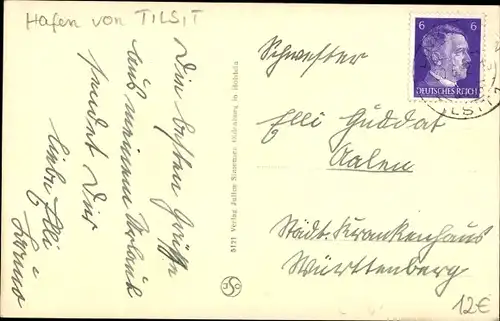 Hafen von TILSIT
Die besten Grüße
aus meinem Urlaub
sendet Dir
liebe Elli
5121 Verlag Julius Simonsen Oldenburg in Holstein
JSO
6 6
DEUTSCHES REICH
TILSIT
Schwester
Elli Guddat
Aalen
Städt. Krankenhaus
Württemberg
12€